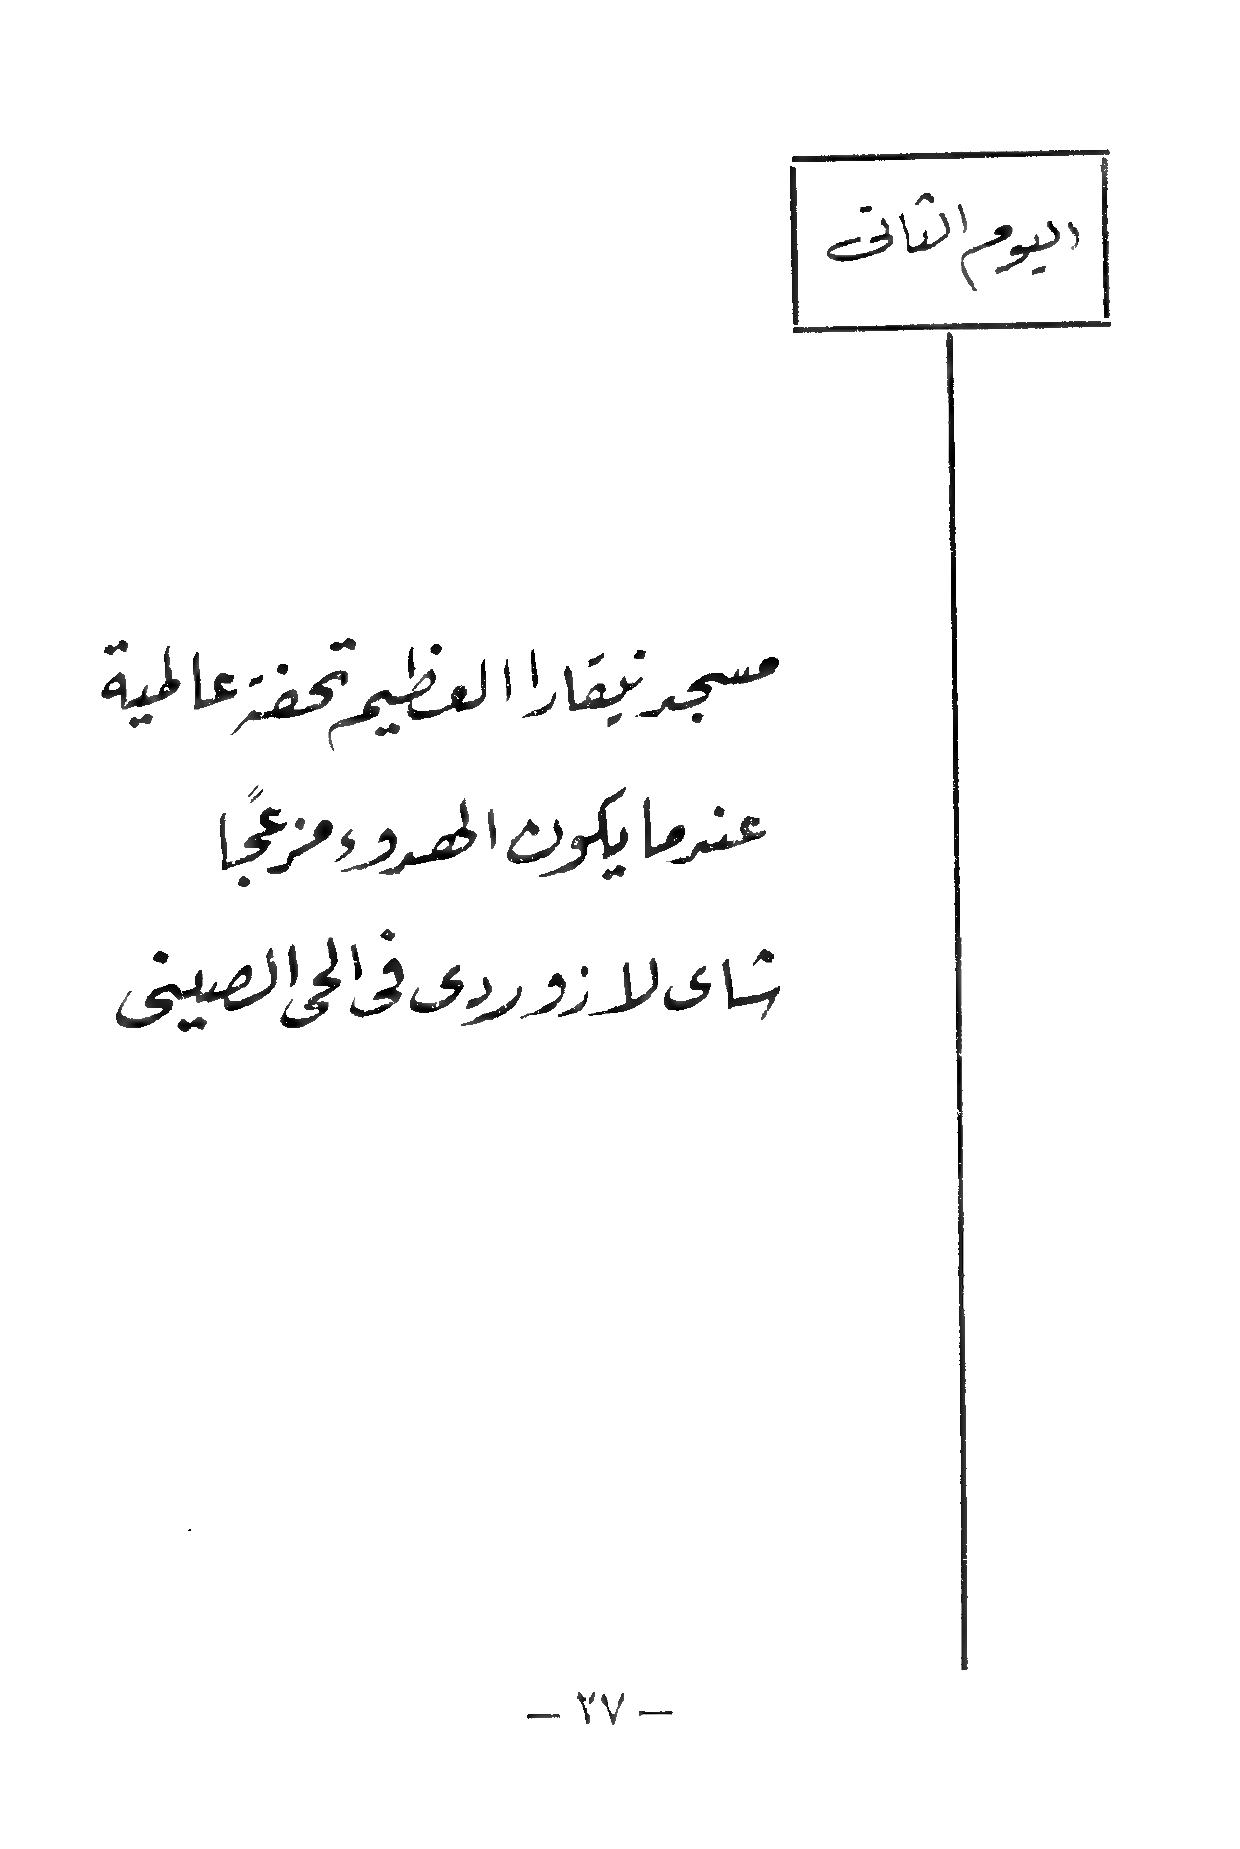 اليوم الثانى
مسجد نيقارا العظيم تحفة عالمية
عندما يكون الهدوء مزعجًا
شاى لازوردى فى الحى الصينى
— ٢٧ —